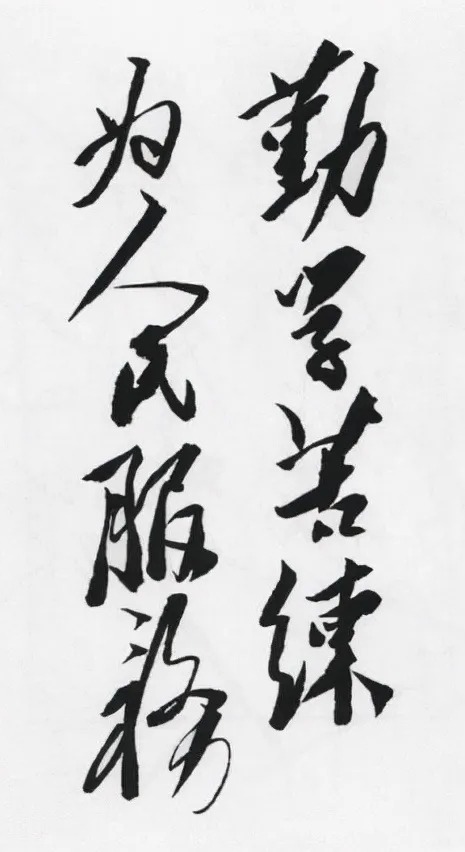 勤学苦练
为人民服務